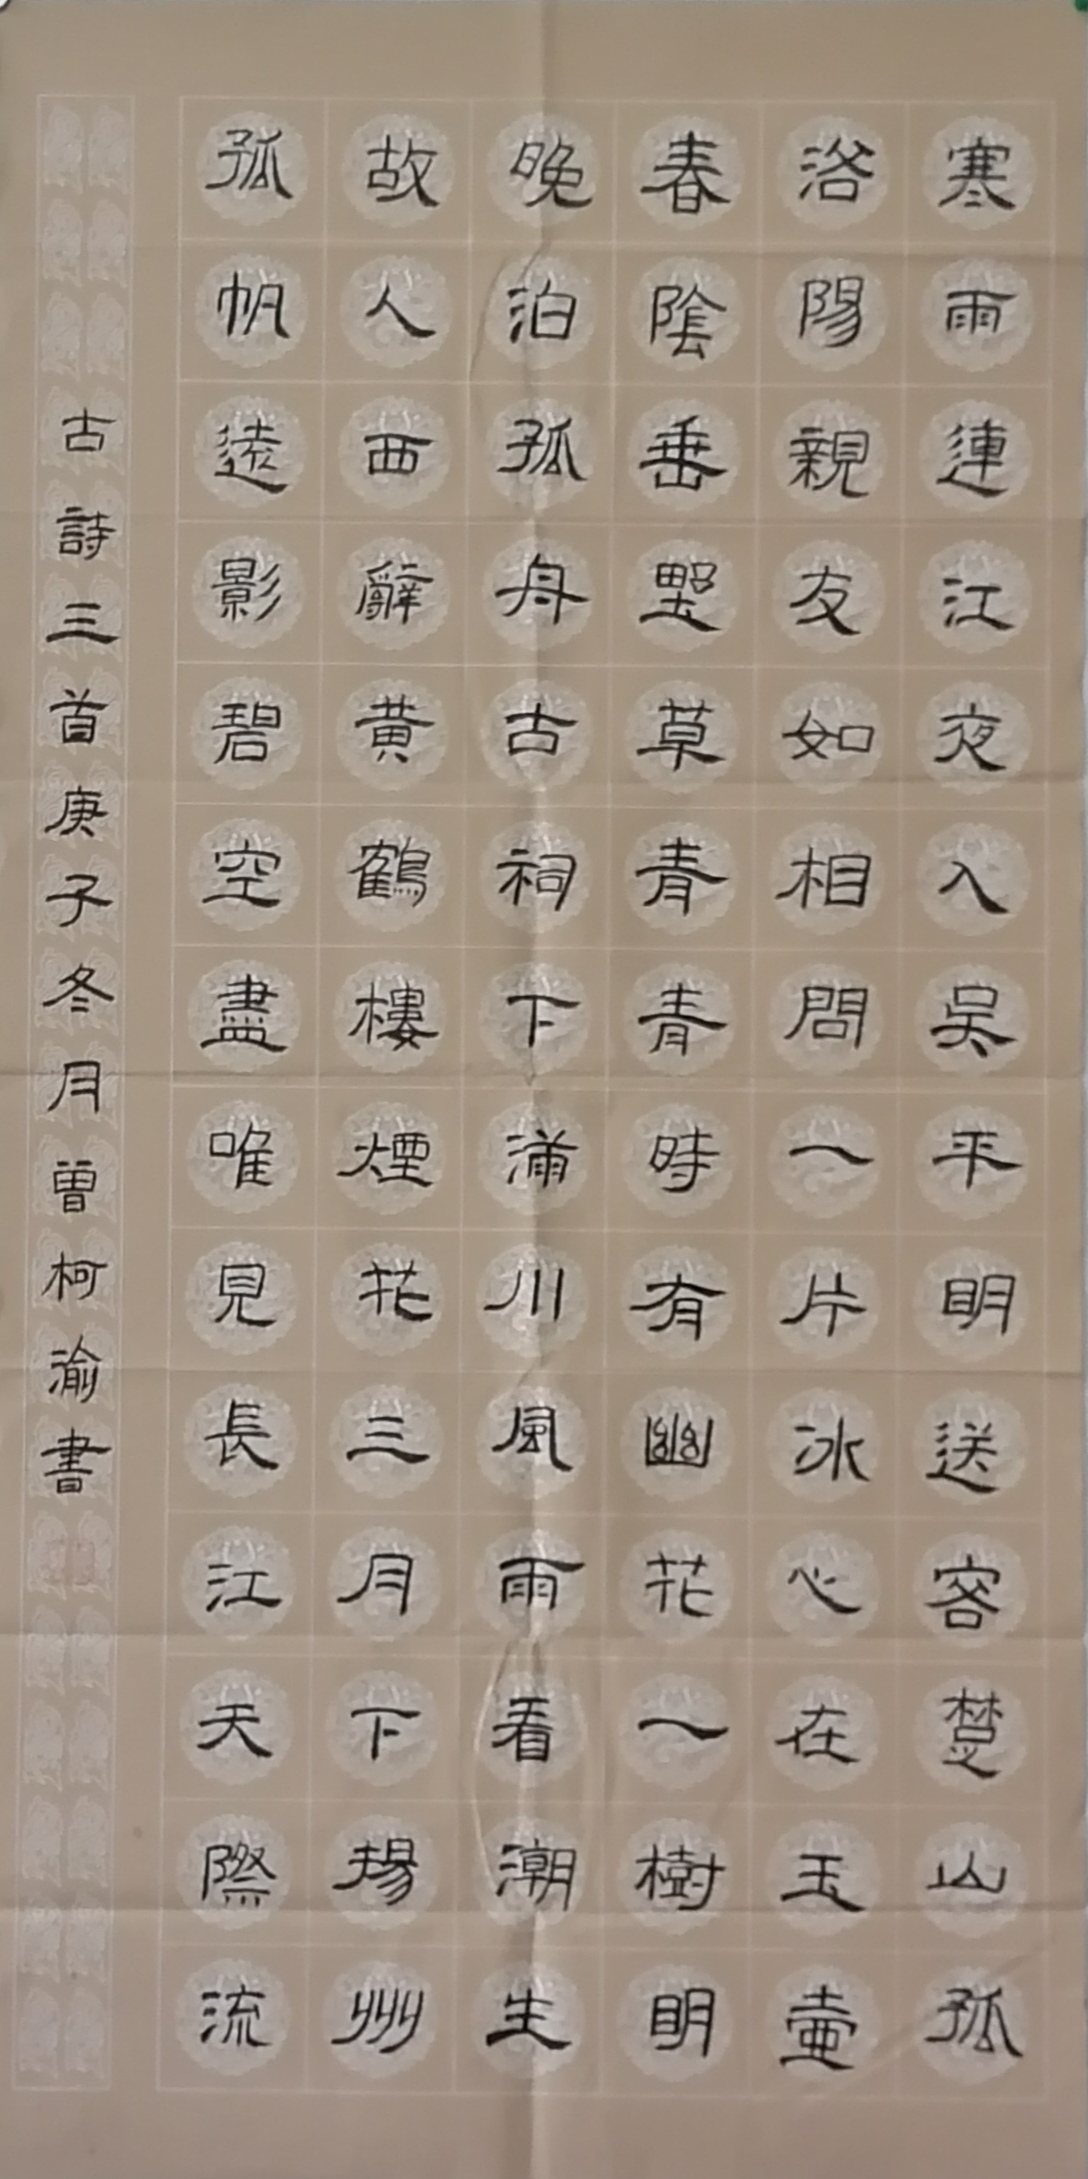 寒雨連江夜入吴平明送客楚山孤
洛陽親友如相問一片冰心在玉壷
春陰垂野草青青時有幽花一樹明
晚泊孤舟古祠下滿川風雨看潮生
故人西辭黄鶴樓煙花三月下揚州
孤帆遠影碧空盡唯見長江天際流
古詩三首庚子冬月曾柯渝書